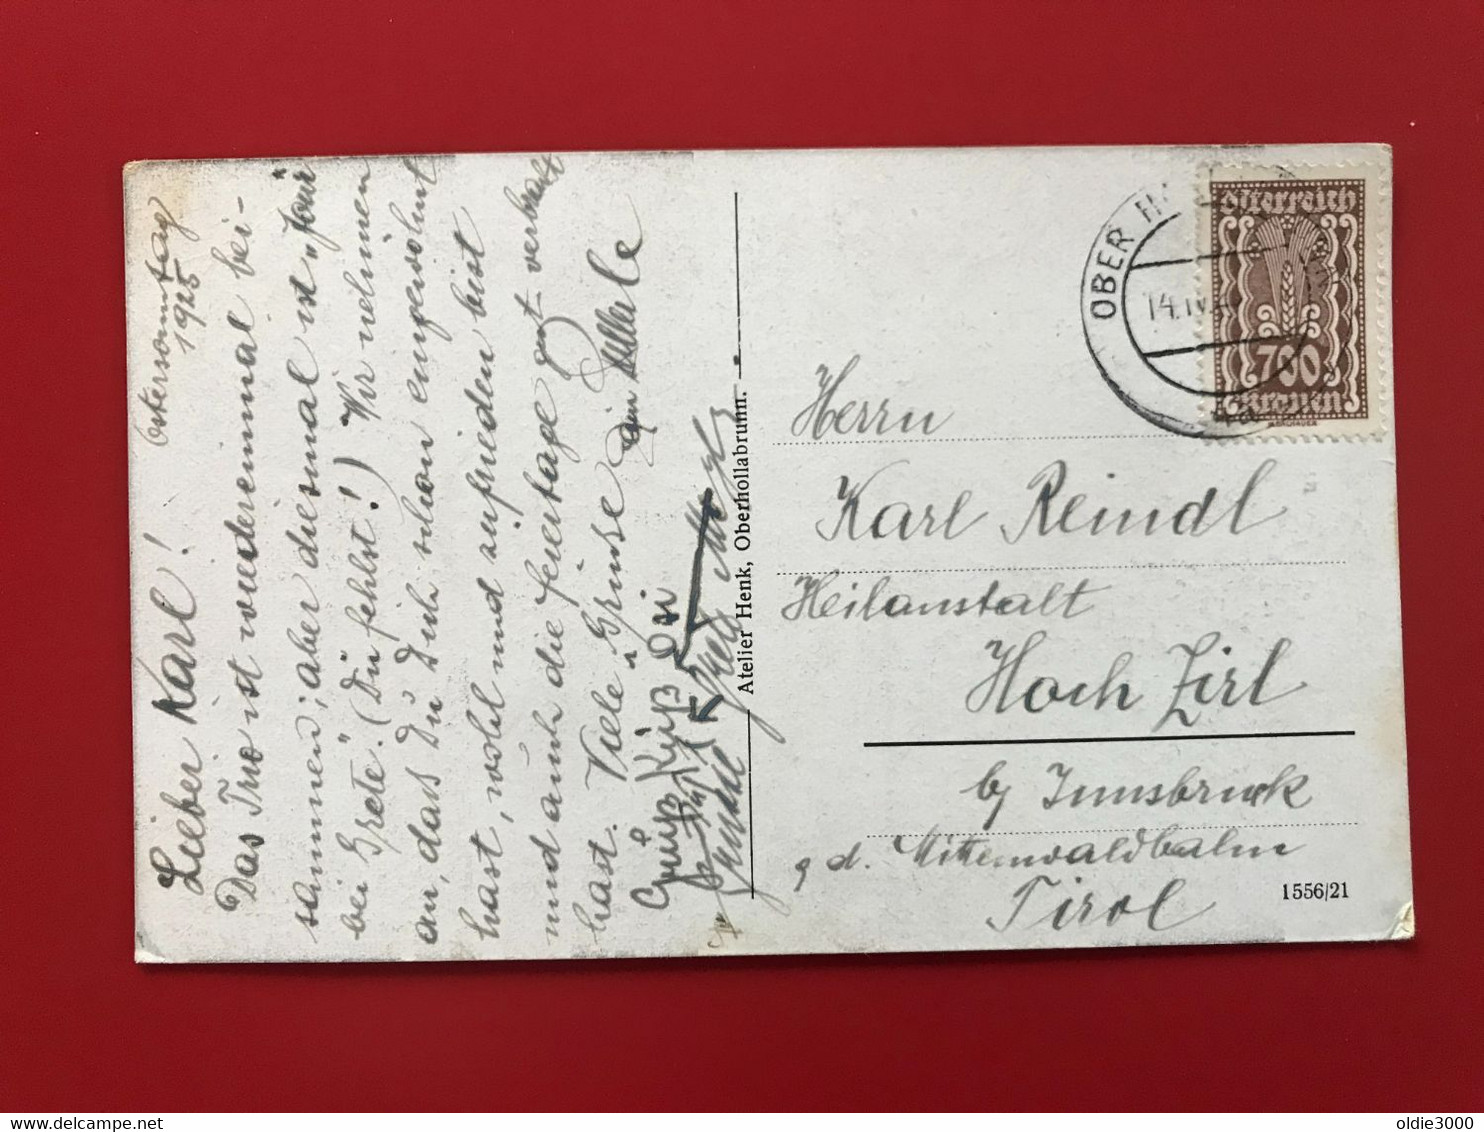 Ostersonntag
1925
Lieber Karl!
Das Trio ist wiedereinmal bei-
sammen; aber diesmal ist
bei Grete". (Du fehlst!) Wir nehmen
an, daß Du Dich schon eingewöhnt
hast, wohl und zufrieden bist
und auch die Feiertage gut verbracht
hast. Viele Grüße
Gruß Kuß
Atelier Henk, Oberhollabrunn.
OBER
14.IV.
Österreich
700
Kronen
Herrn
Karl Reindl
Heilanstalt
Hoch Zirl
b/ Innsbruck
a. d. Mittenwaldbahn
Tirol
1556/21
delcampe.net
oldie3000